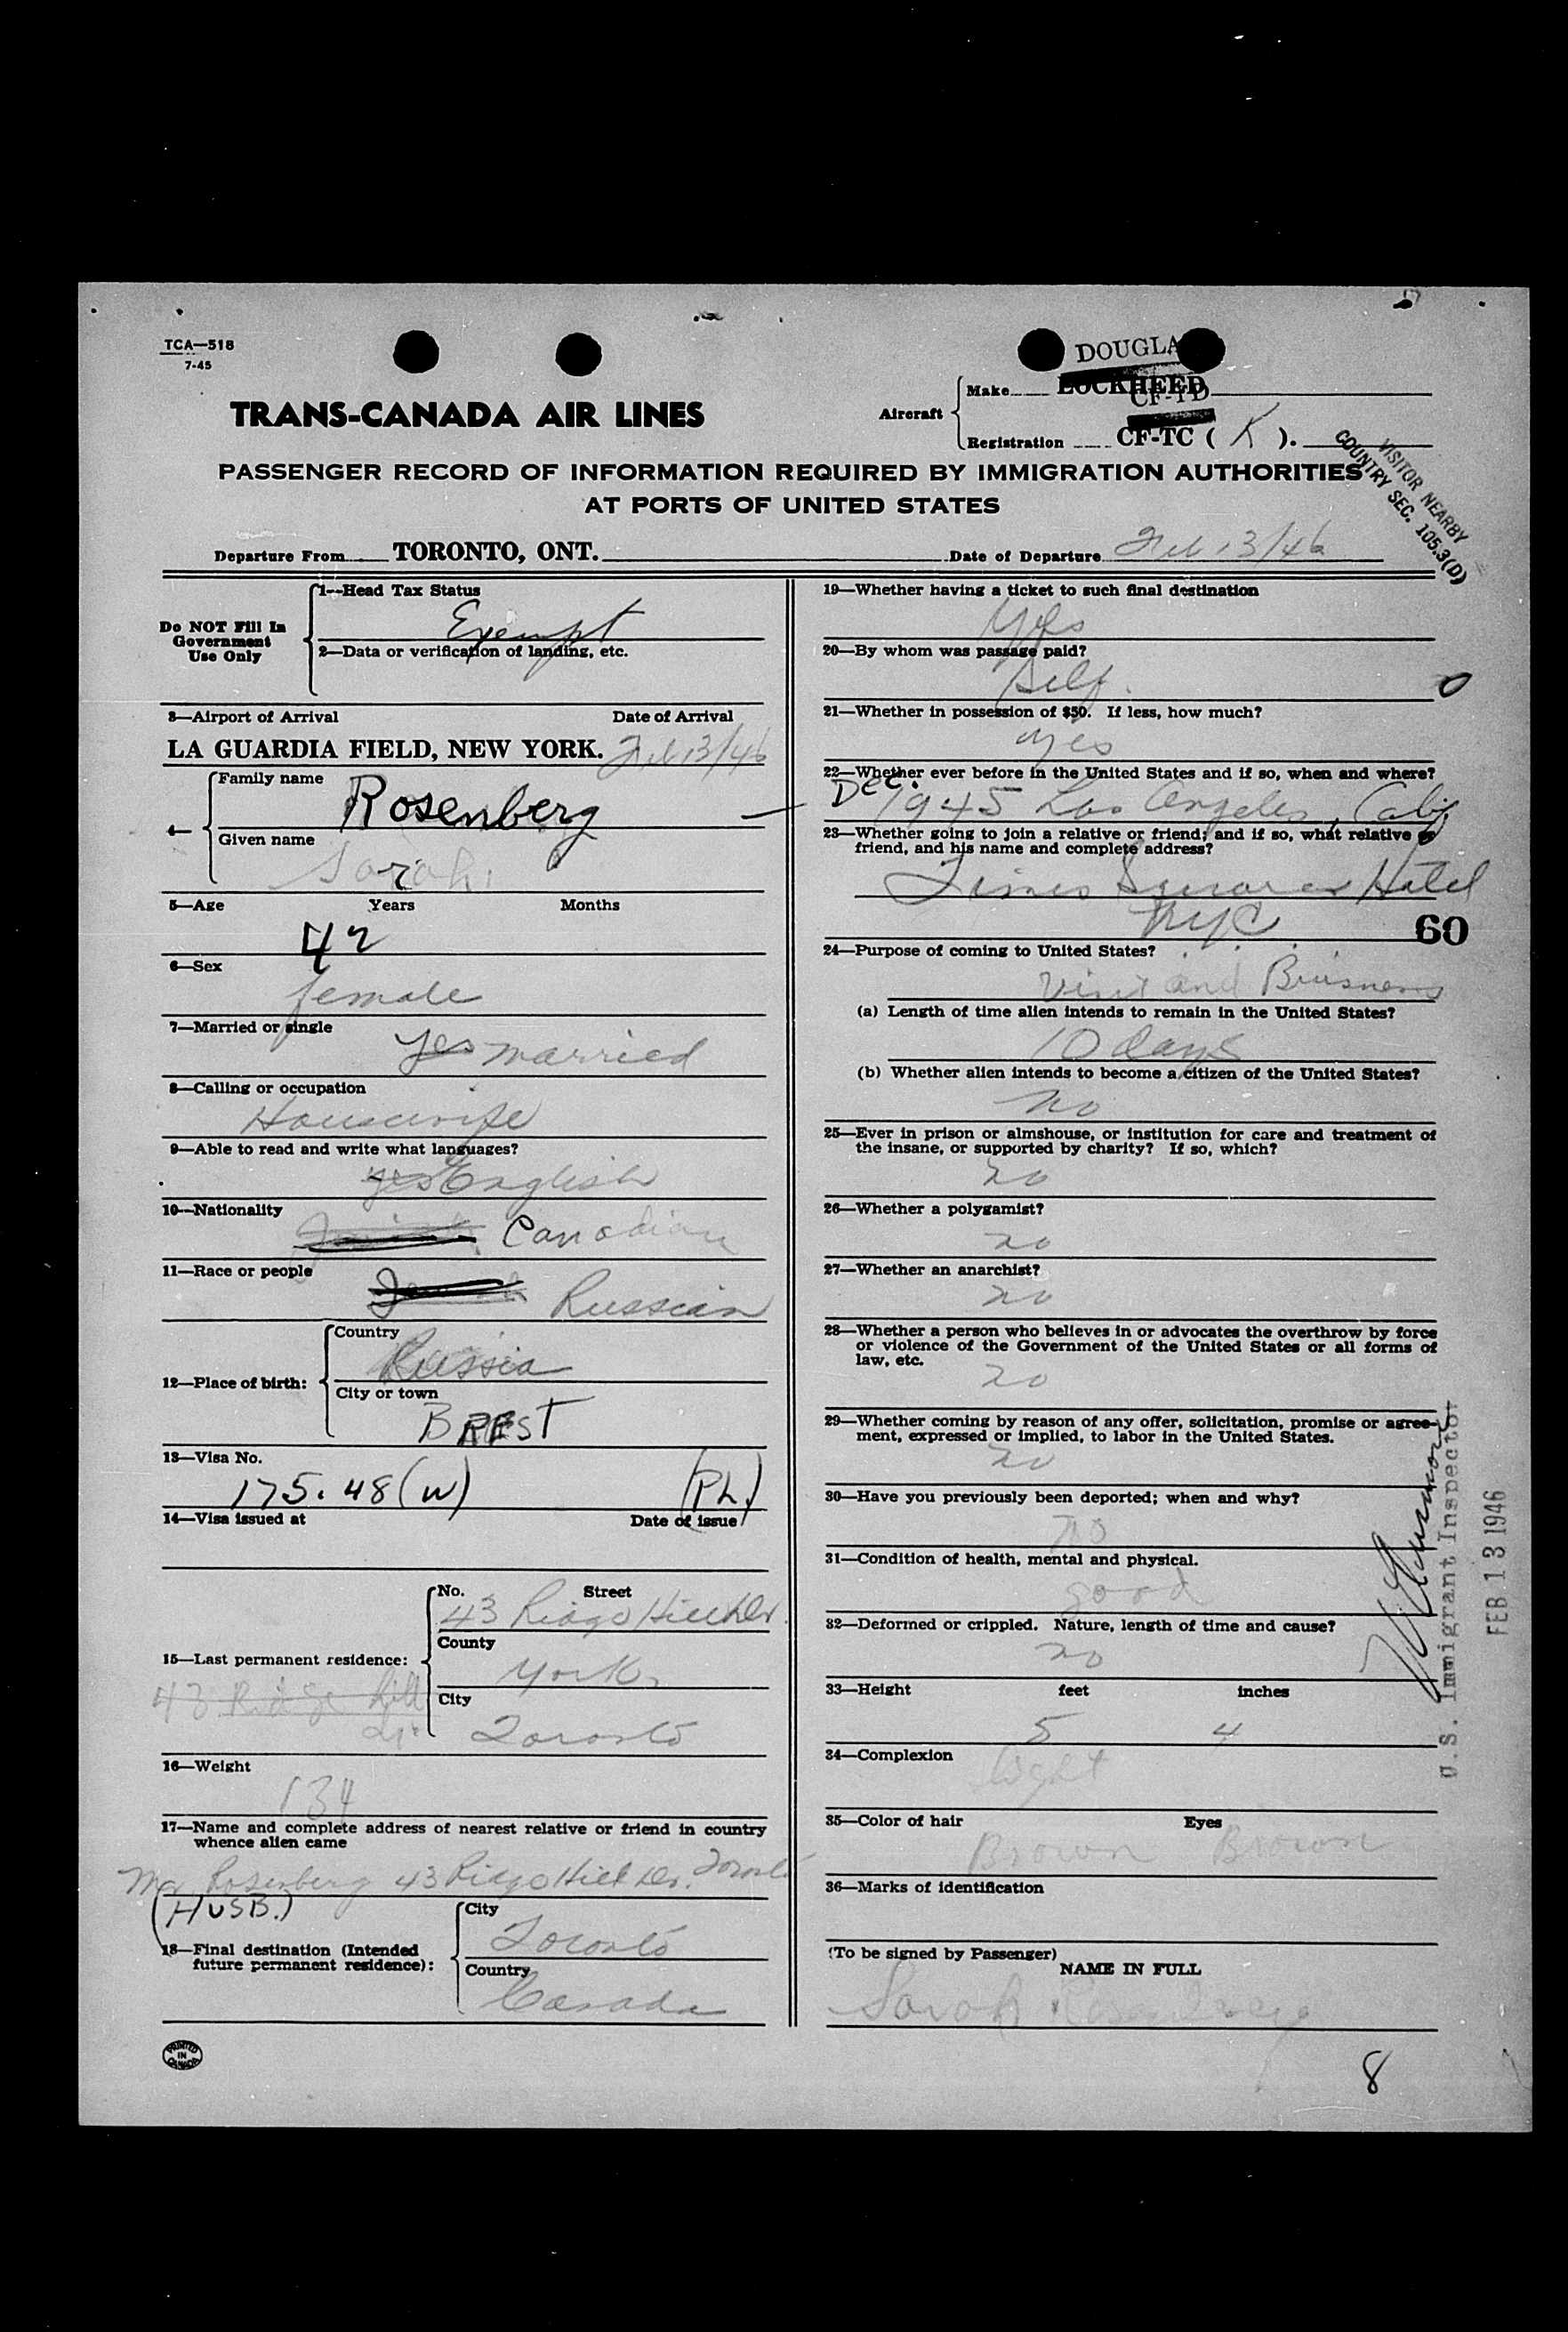 TCA—518
7-45
DOUGLA
Aircraft
Make LOCKHEED
CF-TD
Registration CF-TC ( K ).
TRANS-CANADA AIR LINES
VISITOR NEARBY
COUNTRY SEC. 105.3(D)
PASSENGER RECORD OF INFORMATION REQUIRED BY IMMIGRATION AUTHORITIES
AT PORTS OF UNITED STATES
Departure From TORONTO, ONT. Date of Departure Feb 13/46
Do NOT Fill In
Government
Use Only
1—Head Tax Status
Exempt
2—Data or verification of landing, etc.
3—Airport of Arrival Date of Arrival
LA GUARDIA FIELD, NEW YORK. Feb 13/46
4—
Family name
Rosenberg
Given name
Sarah
5—Age Years Months
42
6—Sex
female
7—Married or single
yes married
8—Calling or occupation
Housewife
9—Able to read and write what languages?
yes English
10—Nationality
Canadian
11—Race or people
Russian
12—Place of birth:
Country
Russia
City or town
BREST
13—Visa No.
175.48 (W) (Ph.)
14—Visa issued at Date of issue
15—Last permanent residence:
43 Ridge hill
dr.
No. Street
43 Ridge Hill Dr.
County
York
City
Toronto
16—Weight
134
17—Name and complete address of nearest relative or friend in country
whence alien came
Rosenberg 43 Ridge Hill Dr. Toronto
(HUSB.)
18—Final destination (Intended
future permanent residence):
City
Toronto
Country
Canada
PRINTED
IN
CANADA
19—Whether having a ticket to such final destination
Yes
20—By whom was passage paid?
Self.
21—Whether in possession of $50. If less, how much?
yes
22—Whether ever before in the United States and if so, when and where?
Dec. 1945 Los Angeles, Calif.
23—Whether going to join a relative or friend; and if so, what relative or
friend, and his name and complete address?
Times Square Hotel
NYC
60
24—Purpose of coming to United States?
Visit and Buisness
(a) Length of time alien intends to remain in the United States?
10 days
(b) Whether alien intends to become a citizen of the United States?
no
25—Ever in prison or almshouse, or institution for care and treatment of
the insane, or supported by charity? If so, which?
no
26—Whether a polygamist?
no
27—Whether an anarchist?
no
28—Whether a person who believes in or advocates the overthrow by force
or violence of the Government of the United States or all forms of
law, etc.
no
29—Whether coming by reason of any offer, solicitation, promise or agree-
ment, expressed or implied, to labor in the United States.
no
30—Have you previously been deported; when and why?
no
31—Condition of health, mental and physical.
good
32—Deformed or crippled. Nature, length of time and cause?
no
33—Height feet inches
5 4
34—Complexion
light
35—Color of hair Eyes
Brown Brown
36—Marks of identification
(To be signed by Passenger)
NAME IN FULL
Sarah Rosenberg
U.S. Immigrant Inspector
FEB 13 1946
8